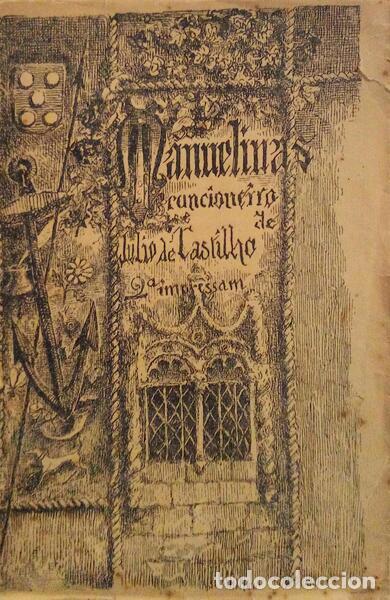 Manuelinas
cancioneiro
de
Julio de Castilho
2ª impressam
todocoleccion